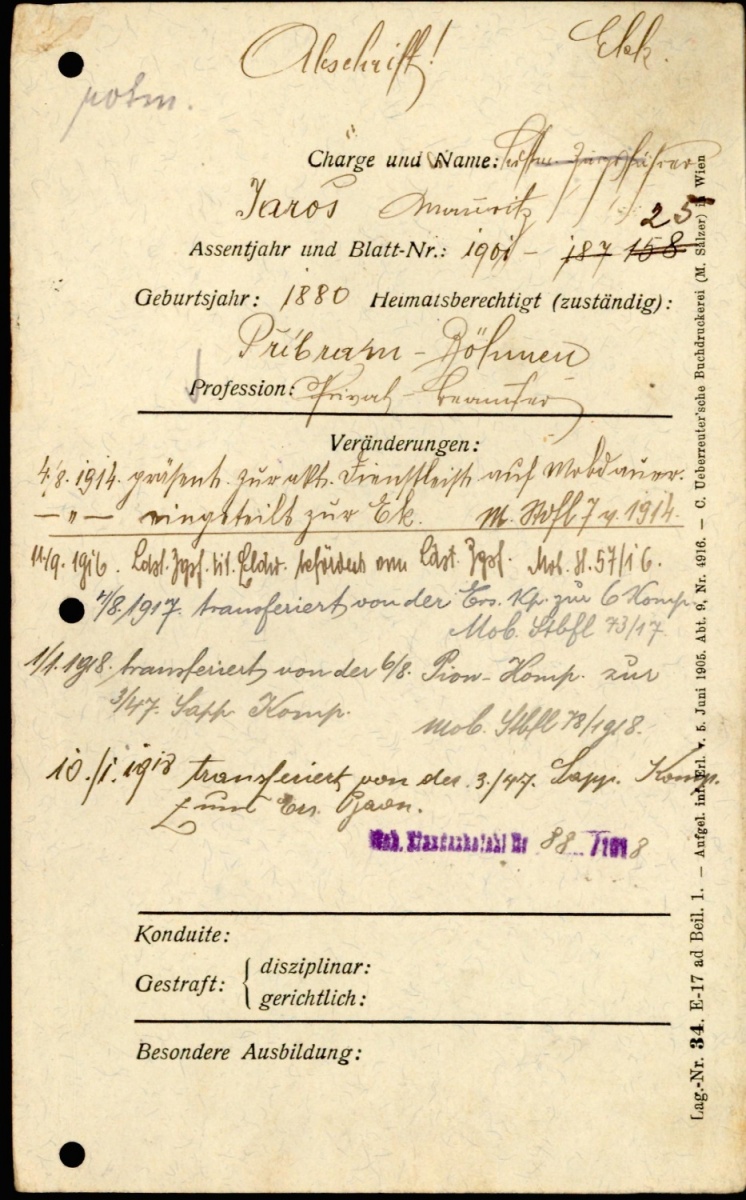 Abschrift! Ekk.
rotm.
Charge und Name:
Jaros Mauritz
25
Assentjahr und Blatt-Nr.: 1901 - 187 158
Geburtsjahr: 1880 Heimatsberechtigt (zuständig):
Přibram - Böhmen
Profession: Privat-beamter
Veränderungen:
4/8. 1914. präsent. zur akt. Dienstleist. auf Mobdauer.
— " — eingeteilt zur Ek. M. Stbfl 7 v. 1914.
11/9. 1916. Ldst. Zgsf. tit. Feldw. befördert vom Ldst. Zgsf. Mob. St. 57/16.
/8. 1917. transferiert von der Ers. Kp. zur 6 Komp.
Mob. Stbfl 73/17
1/1. 1918. transferiert von der 6/8. Pion-Komp. zur
3/47. Sapp. Komp.
Mob. Stbfl 78/1918.
10./1. 1918 transferiert von der 3./47. Sapp. Komp.
zum Ers. Baon.
88 /1918
Konduite:
Gestraft: { disziplinar:
gerichtlich:
Besondere Ausbildung:
Lag.-Nr. 34. E-17 ad Beil. 1. — Aufgel. inf. Erl. v. 5. Juni 1905. Abt. 9, Nr. 4916. — C. Ueberreuter'sche Buchdruckerei (M. Sálzer) in Wien